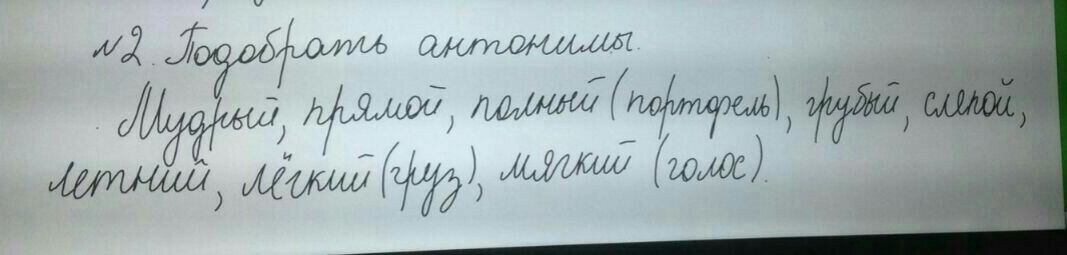 №2. Подобрать антонимы.
Мудрый, прямой, полный (портфель), грубый, слепой,
летний, лёгкий (груз), мягкий (голос).